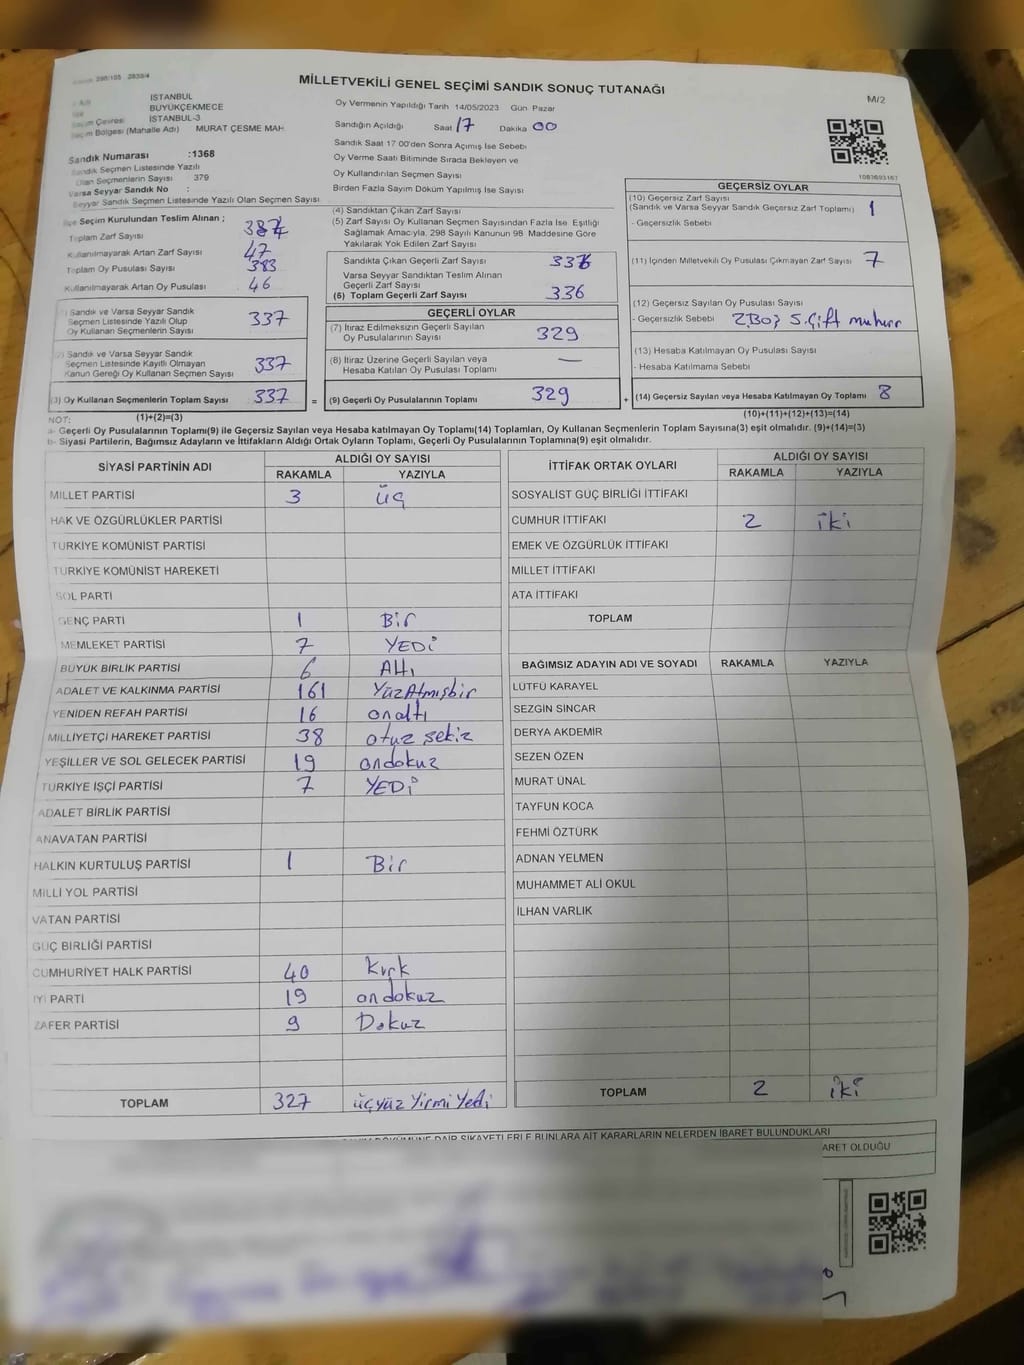 MİLLETVEKİLİ GENEL SEÇİMİ SANDIK SONUÇ TUTANAĞI
M/2
İSTANBUL
BÜYÜKÇEKMECE
İSTANBUL-3
Seçim Bölgesi (Mahalle Adı) MURAT ÇEŞME MAH.
Sandık Numarası :1368
Sandık Seçmen Listesinde Yazılı
Olan Seçmenlerin Sayısı : 379
Varsa Seyyar Sandık No :
Seyyar Sandık Seçmen Listesinde Yazılı Olan Seçmen Sayısı
Oy Vermenin Yapıldığı Tarih 14/05/2023 Gün Pazar
Sandığın Açıldığı Saat 17 Dakika 00
Sandık Saat 17 00'den Sonra Açımış İse Sebebi
Oy Verme Saati Bitiminde Sırada Bekleyen ve
Oy Kullandırılan Seçmen Sayısı
Birden Fazla Sayım Döküm Yapılmış İse Sayısı
İlçe Seçim Kurulundan Teslim Alınan ;
Toplam Zarf Sayısı
Kullanılmayarak Artan Zarf Sayısı 47
Toplam Oy Pusulası Sayısı 383
Kullanılmayarak Artan Oy Pusulası 46
(1) Sandık ve Varsa Seyyar Sandık
Seçmen Listesinde Yazılı Olup
Oy Kullanan Seçmenlerin Sayısı 337
(2) Sandık ve Varsa Seyyar Sandık
Seçmen Listesinde Kayıtlı Olmayan
Kanun Gereği Oy Kullanan Seçmen Sayısı 337
(3) Oy Kullanan Seçmenlerin Toplam Sayısı 337
(1)+(2)=(3)
(4) Sandıktan Çıkan Zarf Sayısı
(5) Zarf Sayısı Oy Kullanan Seçmen Sayısından Fazla İse Eşitliği
Sağlamak Amacıyla, 298 Sayılı Kanunun 98 Maddesine Göre
Yakılarak Yok Edilen Zarf Sayısı
Sandıkta Çıkan Geçerli Zarf Sayısı 336
Varsa Seyyar Sandıktan Teslim Alınan
Geçerli Zarf Sayısı
(6) Toplam Geçerli Zarf Sayısı 336
GEÇERLİ OYLAR
(7) İtiraz Edilmeksizin Geçerli Sayılan
Oy Pusulalarının Sayısı 329
(8) İtiraz Üzerine Geçerli Sayılan veya
Hesaba Katılan Oy Pusulası Toplamı —
= (9) Geçerli Oy Pusulalarının Toplamı 329
1083693167
GEÇERSİZ OYLAR
(10) Geçersiz Zarf Sayısı
(Sandık ve Varsa Seyyar Sandık Geçersiz Zarf Toplamı) 1
- Geçersizlik Sebebi
(11) İçinden Milletvekili Oy Pusulası Çıkmayan Zarf Sayısı 7
(12) Geçersiz Sayılan Oy Pusulası Sayısı
- Geçersizlik Sebebi
(13) Hesaba Katılmayan Oy Pusulası Sayısı
- Hesaba Katılmama Sebebi
+ (14) Geçersiz Sayılan veya Hesaba Katılmayan Oy Toplamı 8
(10)+(11)+(12)+(13)=(14)
NOT:
a- Geçerli Oy Pusulalarının Toplamı(9) ile Geçersiz Sayılan veya Hesaba Katılmayan Oy Toplamı(14) Toplamları, Oy Kullanan Seçmenlerin Toplam Sayısına(3) eşit olmalıdır. (9)+(14)=(3)
b- Siyasi Partilerin, Bağımsız Adayların ve İttifakların Aldığı Ortak Oyların Toplamı, Geçerli Oy Pusulalarının Toplamına(9) eşit olmalıdır.
SİYASİ PARTİNİN ADI ALDIĞI OY SAYISI
RAKAMLA YAZIYLA
MİLLET PARTİSİ 3 üç
HAK VE ÖZGÜRLÜKLER PARTİSİ
TÜRKİYE KOMÜNİST PARTİSİ
TÜRKİYE KOMÜNİST HAREKETİ
SOL PARTİ
GENÇ PARTİ 1 Bir
MEMLEKET PARTİSİ 7 YEDİ
BÜYÜK BİRLİK PARTİSİ 6 Altı
ADALET VE KALKINMA PARTİSİ 161 YüzAtmışbir
YENİDEN REFAH PARTİSİ 16 onaltı
MİLLİYETÇİ HAREKET PARTİSİ 38 otuz sekiz
YEŞİLLER VE SOL GELECEK PARTİSİ 19 ondokuz
TÜRKİYE İŞÇİ PARTİSİ 7 YEDİ
ADALET BİRLİK PARTİSİ
ANAVATAN PARTİSİ
HALKIN KURTULUŞ PARTİSİ 1 Bir
MİLLİ YOL PARTİSİ
VATAN PARTİSİ
GÜÇ BİRLİĞİ PARTİSİ
CUMHURİYET HALK PARTİSİ 40 Kırk
İYİ PARTİ 19 ondokuz
ZAFER PARTİSİ 9 Dokuz
TOPLAM 327 üçyüz Yirmi Yedi
İTTİFAK ORTAK OYLARI ALDIĞI OY SAYISI
RAKAMLA YAZIYLA
SOSYALİST GÜÇ BİRLİĞİ İTTİFAKI
CUMHUR İTTİFAKI 2 iki
EMEK VE ÖZGÜRLÜK İTTİFAKI
MİLLET İTTİFAKI
ATA İTTİFAKI
TOPLAM
BAĞIMSIZ ADAYIN ADI VE SOYADI RAKAMLA YAZIYLA
LÜTFÜ KARAYEL
SEZGİN SİNCAR
DERYA AKDEMİR
SEZEN ÖZEN
MURAT ÜNAL
TAYFUN KOCA
FEHMİ ÖZTÜRK
ADNAN YELMEN
MUHAMMET ALİ OKUL
İLHAN VARLIK
TOPLAM 2 iki
DAİR ŞİKAYETLERLE BUNLARA AİT KARARLARIN NELERDEN İBARET BULUNDUKLARI
OLDUĞU